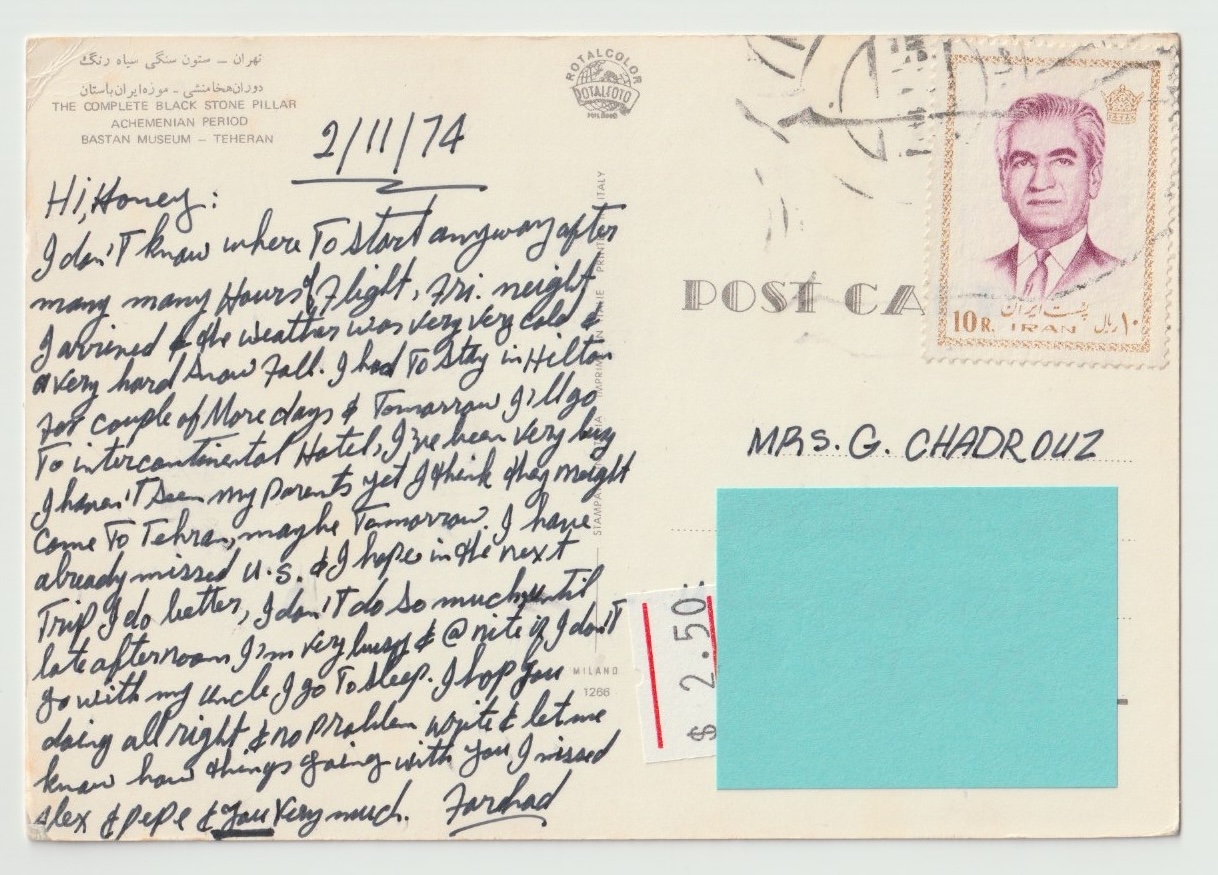 تهران – ستون سنگی سیاه رنگ
دوران هخامنشی – موزه ایران باستان
THE COMPLETE BLACK STONE PILLAR
ACHEMENIAN PERIOD
BASTAN MUSEUM – TEHERAN
2/11/74
Hi, Honey:
I don't know where To start anyway after
many many Hours of Flight, Fri. neight
I arrived & the weather was very very cold &
a very hard snow Fall. I had To stay in Hilton
For couple of More days & Tomorrow I'll go
To intercontinental Hotel, I've been very busy
I haven't seen my parents yet I think they meight
come To Tehran, maybe Tomorrow. I have
already missed U.S. & I hope in the next
Trip I do better, I don't do so much until
late afternoon I'm very busy & @ nite if I don't
go with my uncle, I go To sleep. I hop you
doing all right & no problem write & let me
know how things going with you. I missed
Alex & pepe & you very much. Farhad
ROTALCOLOR
ROTALFOTO
MILANO
1266
POST CA
پست ایران
10 R. IRAN ۱۰ ریال
MRS. G. CHADROUZ
$ 2.50